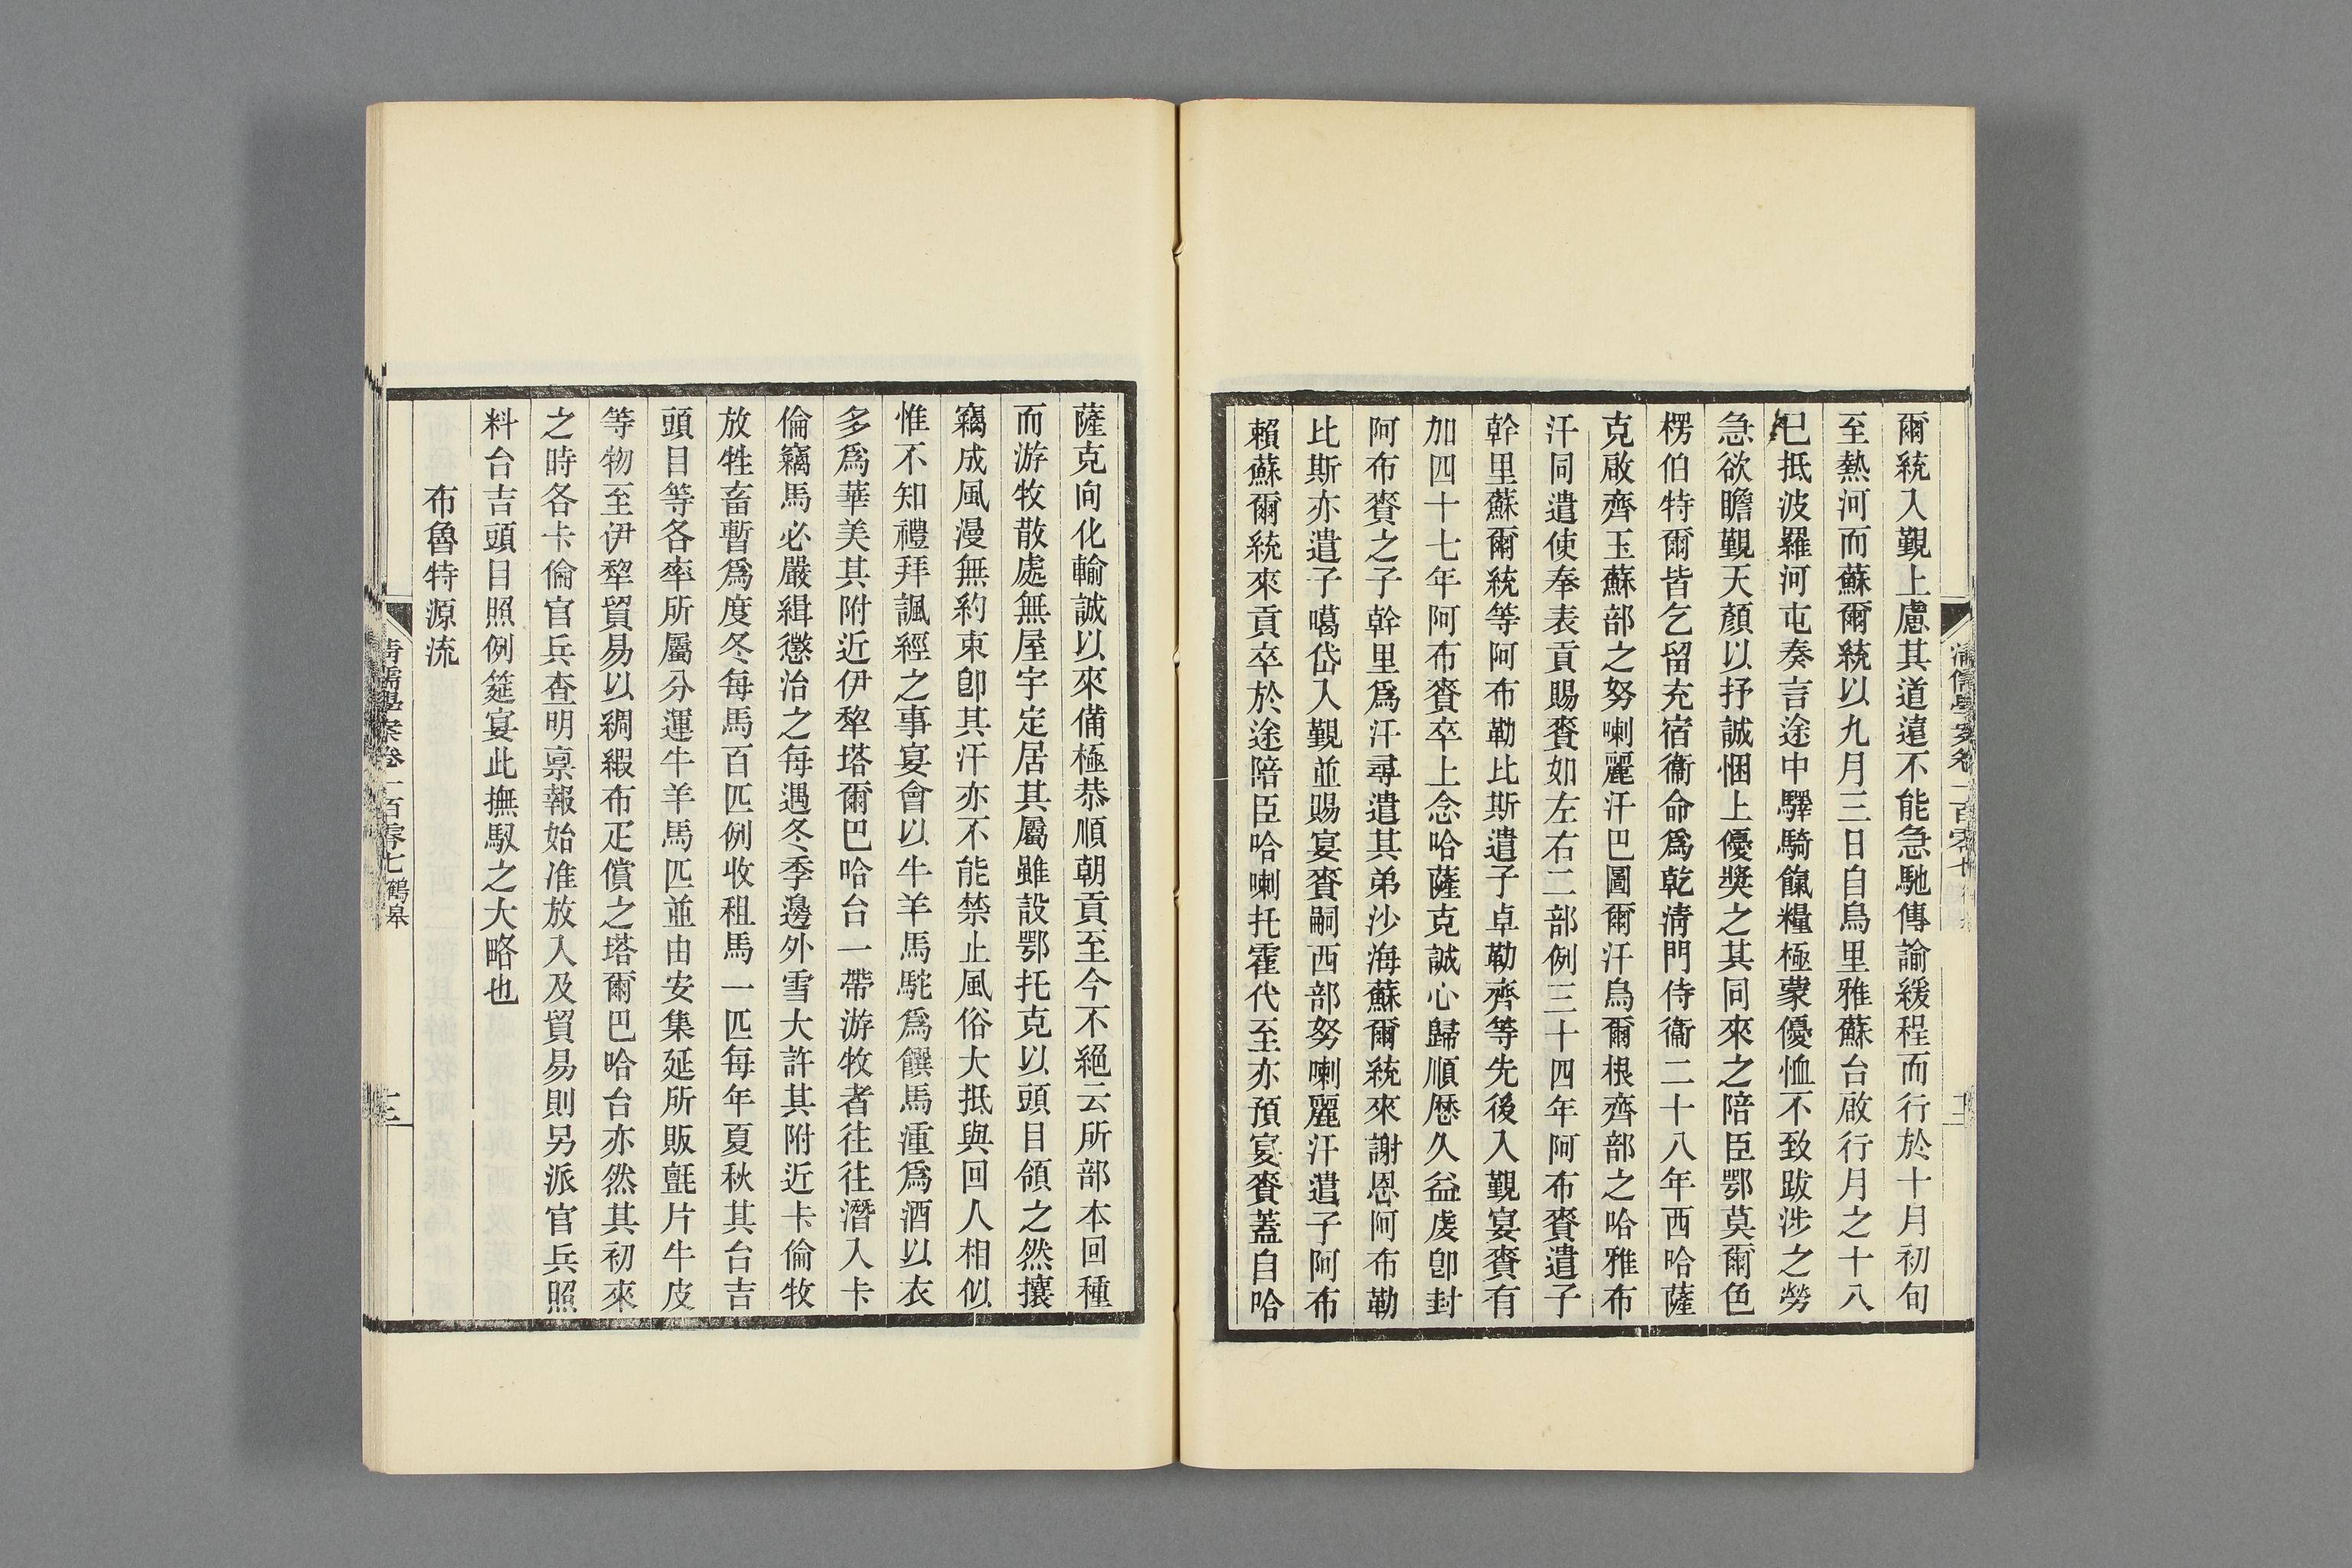 爾統入覲上慮其道遠不能急馳傳諭緩程而行於十月初旬
至熱河而蘇爾統以九月三日自烏里雅蘇台啟行月之十八
已抵波羅河屯奏言途中驛騎餼糧極蒙優恤不致跋涉之勞
急欲瞻覲天顏以抒誠悃上優獎之其同來之陪臣鄂莫爾色
楞伯特爾皆乞留充宿衞命爲乾淸門侍衞二十八年西哈薩
克啟齊玉蘇部之努喇麗汗巴圖爾汗烏爾根齊部之哈雅布
汗同遣使奉表貢賜賚如左右二部例三十四年阿布賚遣子
幹里蘇爾統等阿布勒比斯遣子卓勒齊等先後入覲宴賚有
加四十七年阿布賚卒上念哈薩克誠心歸順歷久益虔卽封
阿布賚之子幹里爲汗尋遣其弟沙海蘇爾統來謝恩阿布勒
比斯亦遣子噶岱入覲並賜宴賚嗣西部努喇麗汗遣子阿布
賴蘇爾統來貢卒於途陪臣哈喇托霍代至亦預宴賚蓋自哈
薩克向化輸誠以來備極恭順朝貢至今不絕云所部本回種
而游牧散處無屋宇定居其屬雖設鄂托克以頭目領之然攘
竊成風漫無約束卽其汗亦不能禁止風俗大抵與回人相似
惟不知禮拜諷經之事宴會以牛羊馬駝爲饌馬湩爲酒以衣
多爲華美其附近伊犂塔爾巴哈台一帶游牧者往往潛入卡
倫竊馬必嚴緝懲治之每遇冬季邊外雪大許其附近卡倫牧
放牲畜暫爲度冬每馬百匹例收租馬一匹每年夏秋其台吉
頭目等各率所屬分運牛羊馬匹並由安集延所販氈片牛皮
等物至伊犂貿易以綢緞布疋償之塔爾巴哈台亦然其初來
之時各卡倫官兵查明禀報始准放入及貿易則另派官兵照
料台吉頭目照例筵宴此撫馭之大略也
布魯特源流
清儒學案卷一百零七 鶴皋
十三